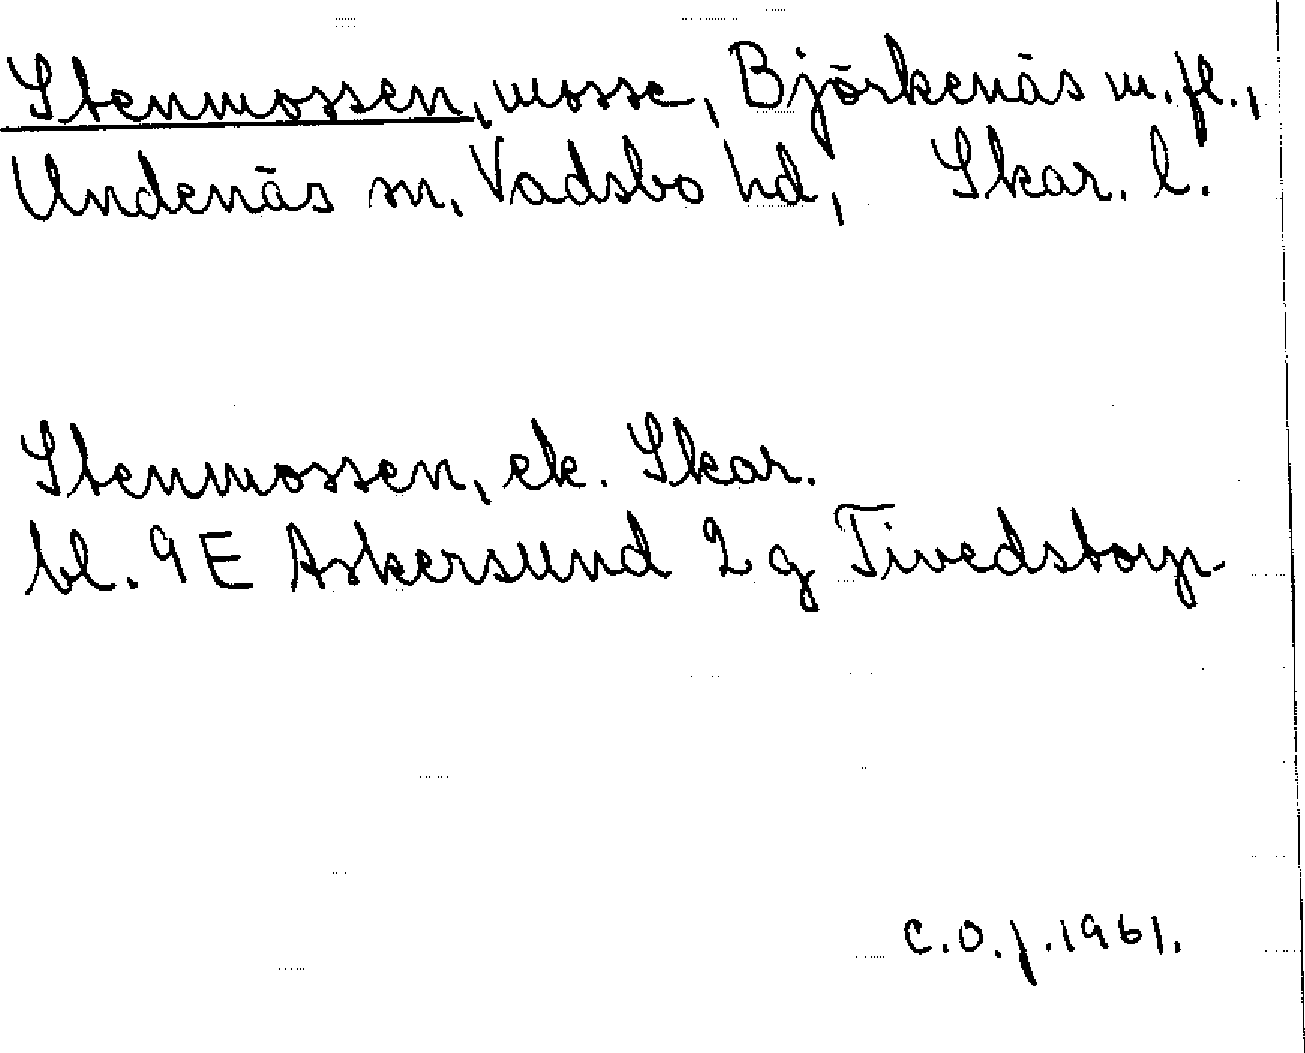 Stenmossen, mosse, Björkenäs m.fl.,
Undenäs sn, Vadsbo hd, Skar. l.
Stenmossen, ek. Skar.
bl. 9E Askersund 2g Tivedstorp
C.O.J. 1961.